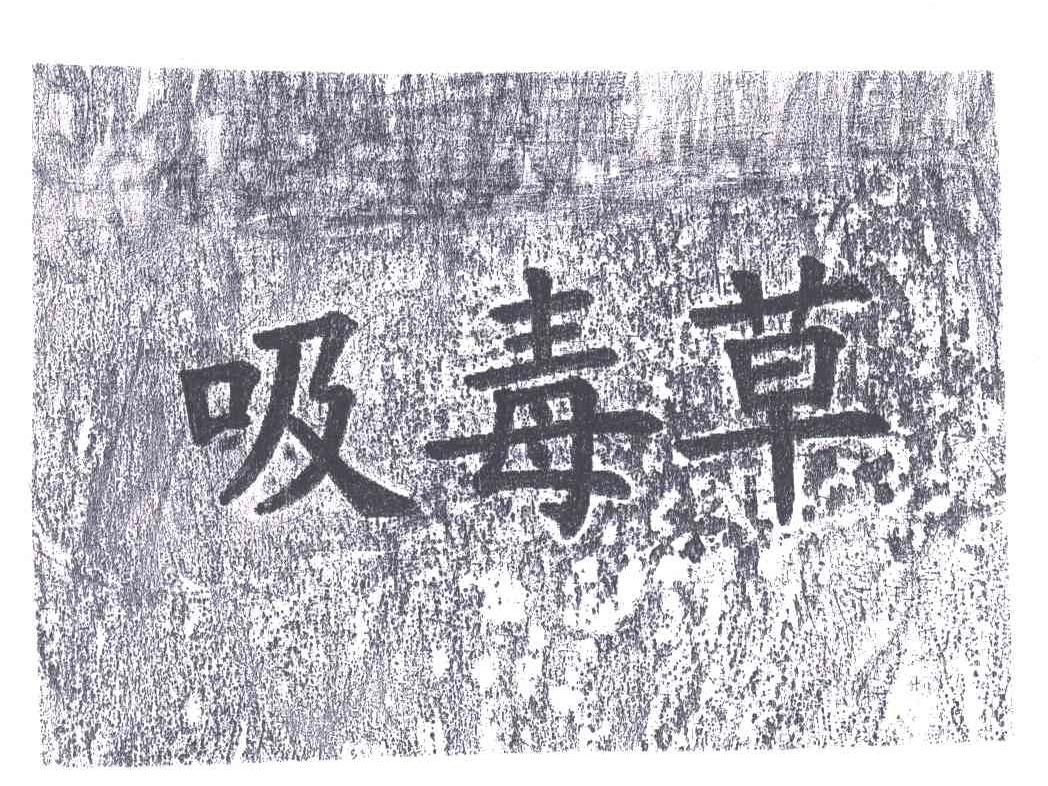 吸毒草